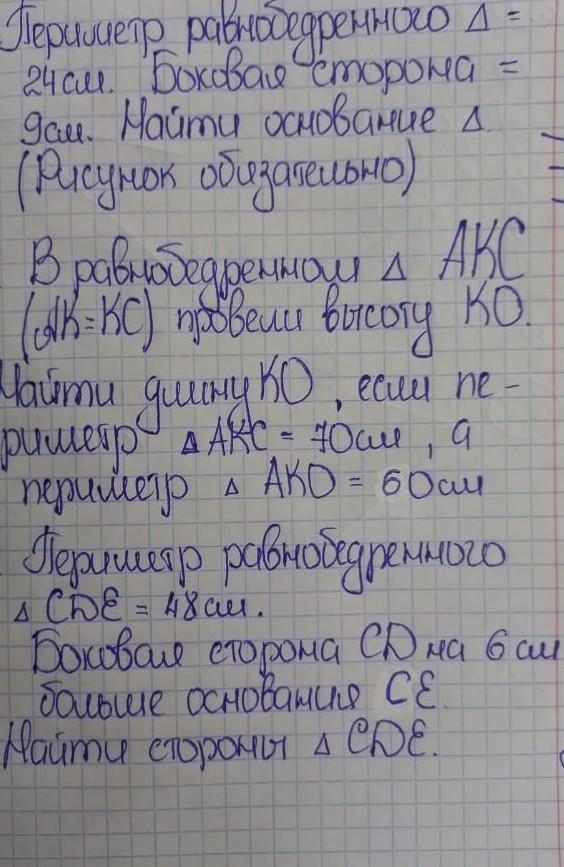 Периметр равнобедренного Δ =
24см. Боковая сторона =
9см. Найти основание Δ.
(Рисунок обязательно)
В равнобедренном Δ АКС
(АК=КС) провели высоту КО.
Найти длину КО, если пе-
риметр Δ АКС = 70см, а
периметр Δ АКО = 60см
Периметр равнобедренного
Δ CDE = 48см.
Боковая сторона CD на 6 см
больше основания CE.
Найти стороны Δ CDE.